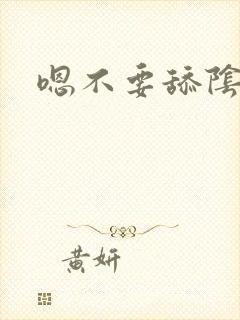 嗯不要舔陰
黄妍